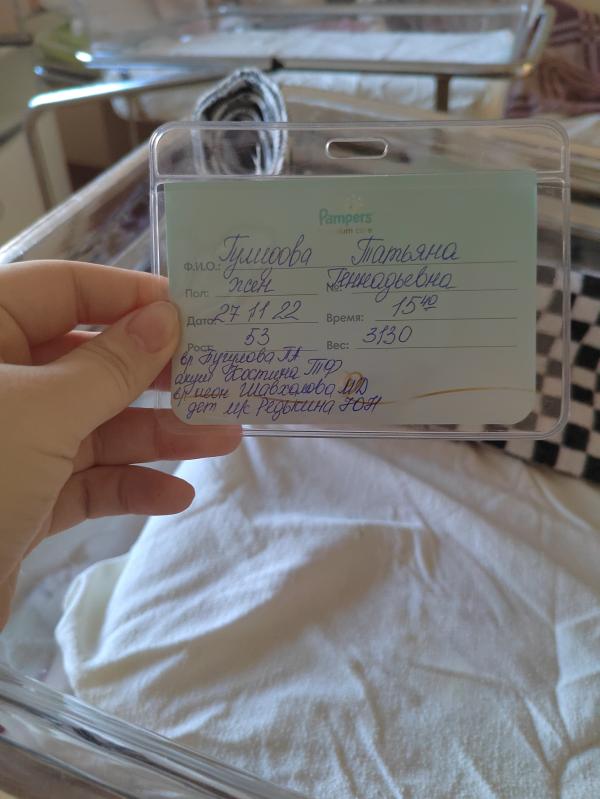 Pampers
premium care
Ф.И.О.: Гулисова Татьяна
Пол: жен №: Геннадьевна
Дата: 27 11 22 Время: 15 40
Рост: 53 Вес: 3130
вр Пугулова ПА
акуш Костина ТФ
вр неон Шавхалова МД
дет м/с Редькина